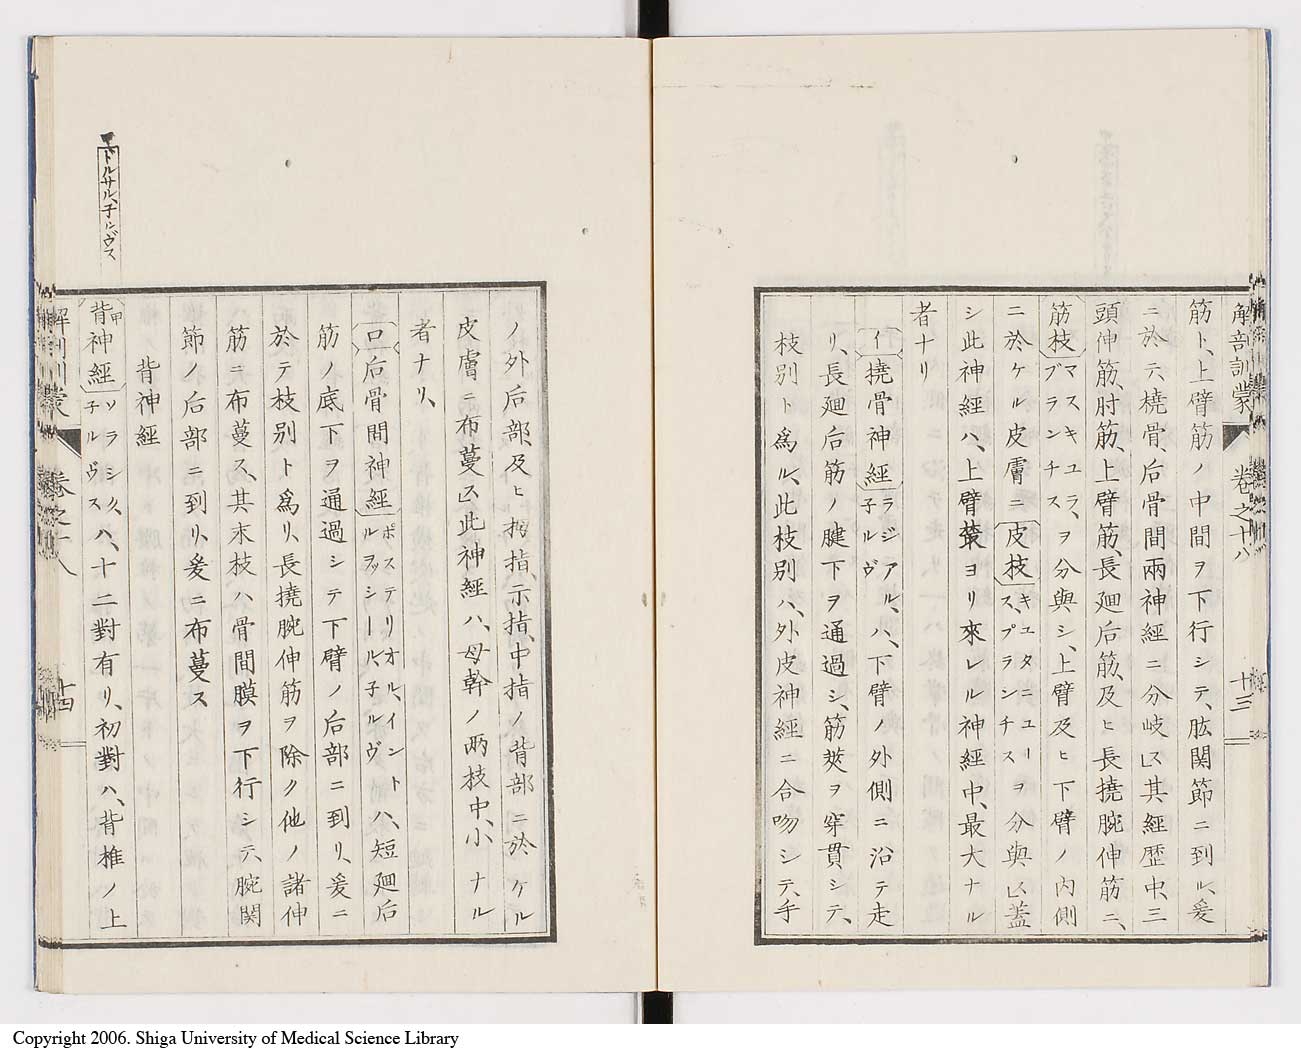 解剖訓蒙 卷之十八 十三
筋ト、上臂筋ノ中間ヲ下行シテ、肱関節ニ到ル、爰
ニ於テ、橈骨、后骨間兩神經ニ分岐ス、其經歴中、三
頭伸筋、肘筋、上臂筋、長廻后筋、及ヒ長撓腕伸筋ニ、
筋枝マスキユラ、ブランチスヲ分與シ、上臂及ヒ下臂ノ内側
ニ於ケル皮膚ニ皮枝キユタニユース、ブランチスヲ分與ス、蓋
シ此神經ハ、上臂叢ヨリ來レル神經中、最大ナル
者ナリ
イ撓骨神經ラジアル、子ルヴハ、下臂ノ外側ニ沿テ走
リ、長廻后筋ノ腱下ヲ通過シ、筋莢ヲ穿貫シテ、
枝別ト爲ル、此枝別ハ、外皮神經ニ合吻シテ、手
ノ外后部、及ヒ拇指、示指、中指ノ背部ニ於ケル
皮膚ニ布蔓ス、此神經ハ、母幹ノ兩枝中、小ナル
者ナリ、
ロ后骨間神經ポステリオル、イントルヲッシール、子ルヴハ、短廻后
筋ノ底下ヲ通過シテ下臂ノ后部ニ到リ、爰ニ
於テ枝別ト爲リ、長撓腕伸筋ヲ除ク他ノ諸伸
筋ニ布蔓ス、其末枝ハ骨間膜ヲ下行シテ、腕関
節ノ后部ニ到リ、爰ニ布蔓ス
背神經
甲背神經ソラシク、子ルヴスハ、十二對有リ、初對ハ、背椎ノ上
ドルサル、子ルヴス
解剖訓蒙 卷之十八 十四
Copyright 2006. Shiga University of Medical Science Library